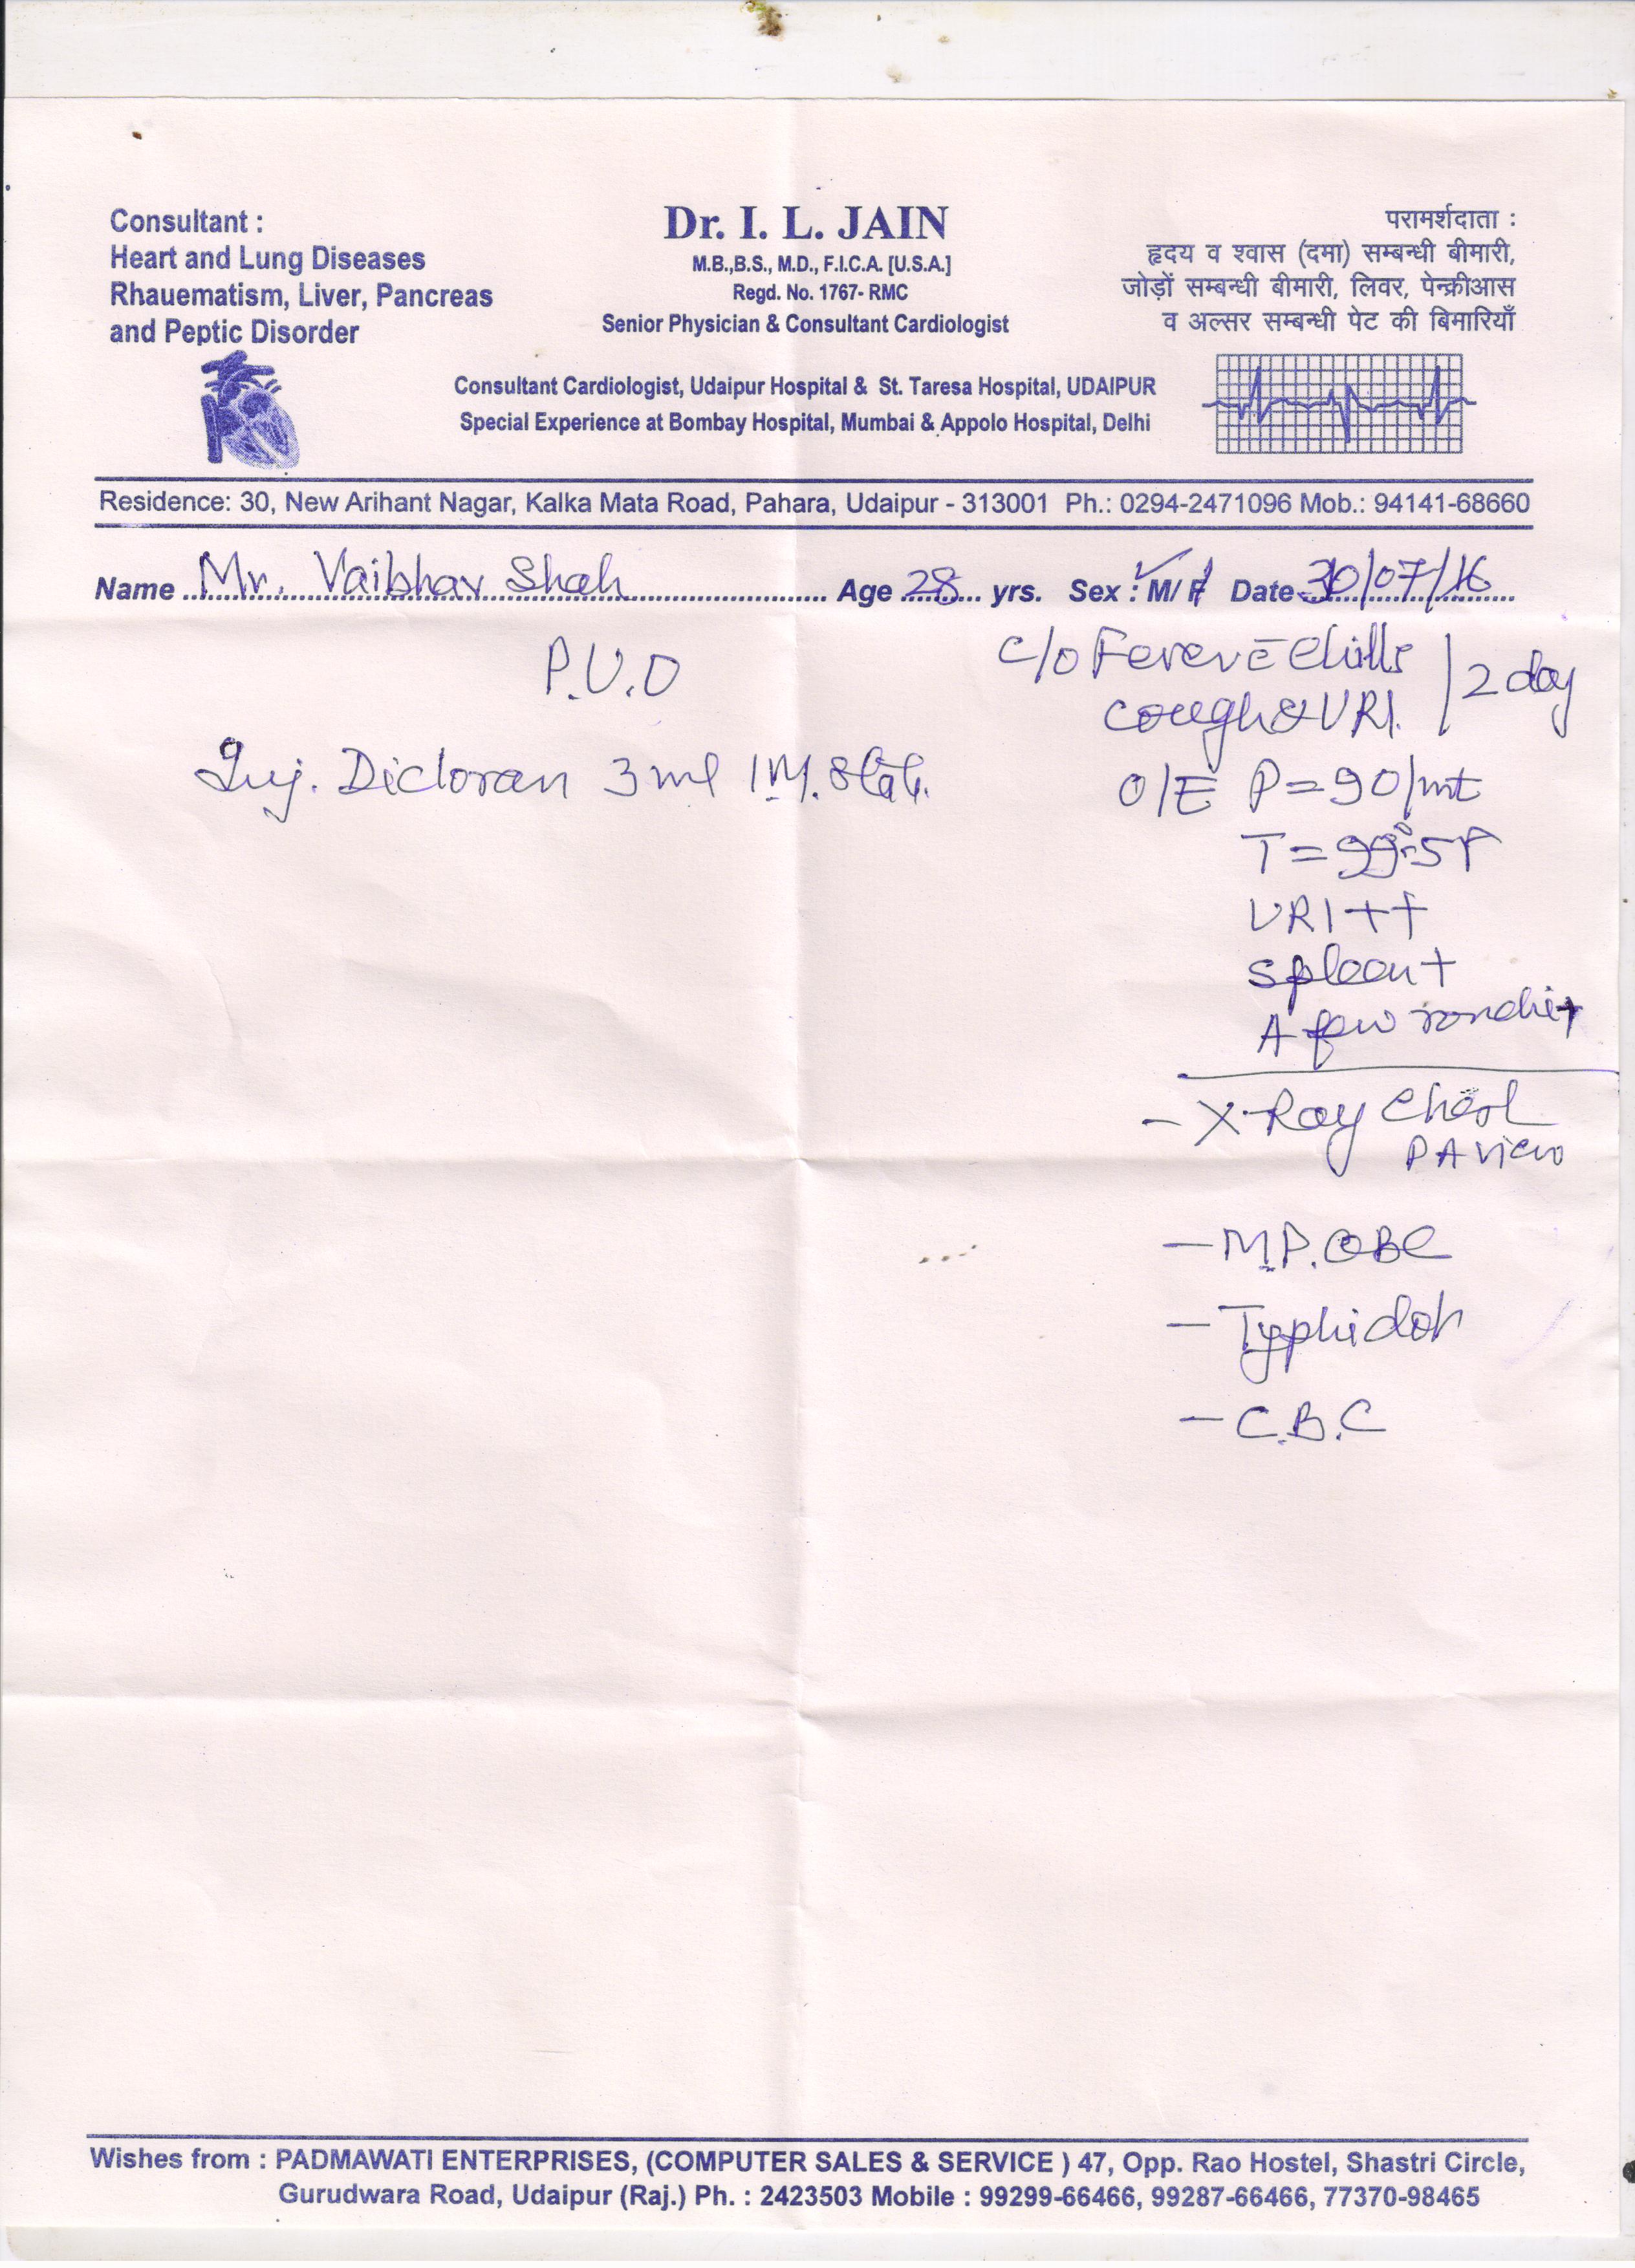 Consultant :
Heart and Lung Diseases
Rhauematism, Liver, Pancreas
and Peptic Disorder
Dr. I. L. JAIN
M.B.,B.S., M.D., F.I.C.A. [U.S.A.]
Regd. No. 1767- RMC
Senior Physician & Consultant Cardiologist
परामर्शदाता :
हृदय व श्वास (दमा) सम्बन्धी बीमारी,
जोड़ों सम्बन्धी बीमारी, लिवर, पेन्क्रीआस
व अल्सर सम्बन्धी पेट की बिमारियाँ
Consultant Cardiologist, Udaipur Hospital & St. Taresa Hospital, UDAIPUR
Special Experience at Bombay Hospital, Mumbai & Appolo Hospital, Delhi
Residence: 30, New Arihant Nagar, Kalka Mata Road, Pahara, Udaipur - 313001 Ph.: 0294-2471096 Mob.: 94141-68660
Name Mr. Vaibhav Shah Age 28 yrs. Sex : M/ F Date 30/07/16
P.U.O
Inj. Dicloran 3 ml I.M. Stat.
C/o Fever c̄ Chills
Cough & URI. / 2 day
O/E P = 90/mt
T = 99.5°F
URI ++
Spleen +
A few ronchi +
- X-Ray Chest
PA View
- M.P. QBC
- Typhidot
- C.B.C
Wishes from : PADMAWATI ENTERPRISES, (COMPUTER SALES & SERVICE ) 47, Opp. Rao Hostel, Shastri Circle,
Gurudwara Road, Udaipur (Raj.) Ph. : 2423503 Mobile : 99299-66466, 99287-66466, 77370-98465